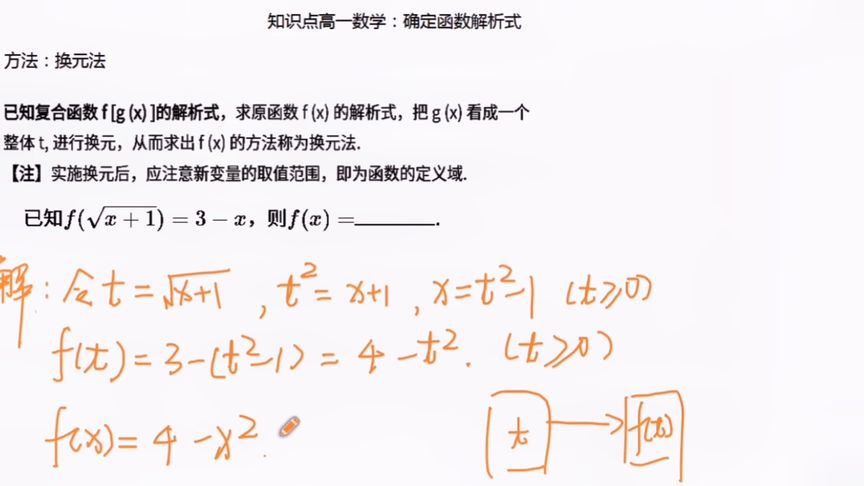 知识点高一数学：确定函数解析式
方法：换元法
已知复合函数 f [g (x) ]的解析式，求原函数 f (x) 的解析式，把 g (x) 看成一个
整体 t, 进行换元，从而求出 f (x) 的方法称为换元法.
【注】实施换元后，应注意新变量的取值范围，即为函数的定义域.
已知f(√(x+1))=3−x，则f(x)=________.
解：令t=√(x+1)，t²=x+1，x=t²-1 (t≥0)
f(t)=3-(t²-1)=4-t². (t≥0)
f(x)=4-x².
t → f(t)